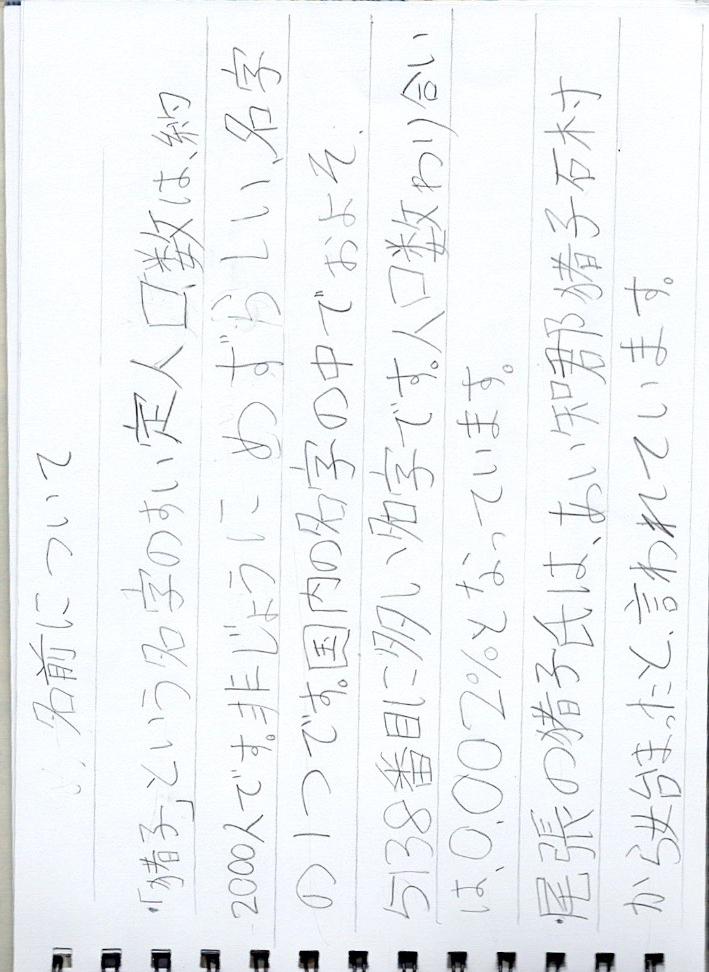 名前について
・「猪子」という名字のすい定人口数は、約
2000人です。非じょうにめずらしい、名字
の1つです。国内の名字の中でおよそ
5138番目に多い名字です。人口数わり合い
は、0.002%となっています。
・尾張の猪子氏は、あい知郡猪子石村
から始まったと、言われています。